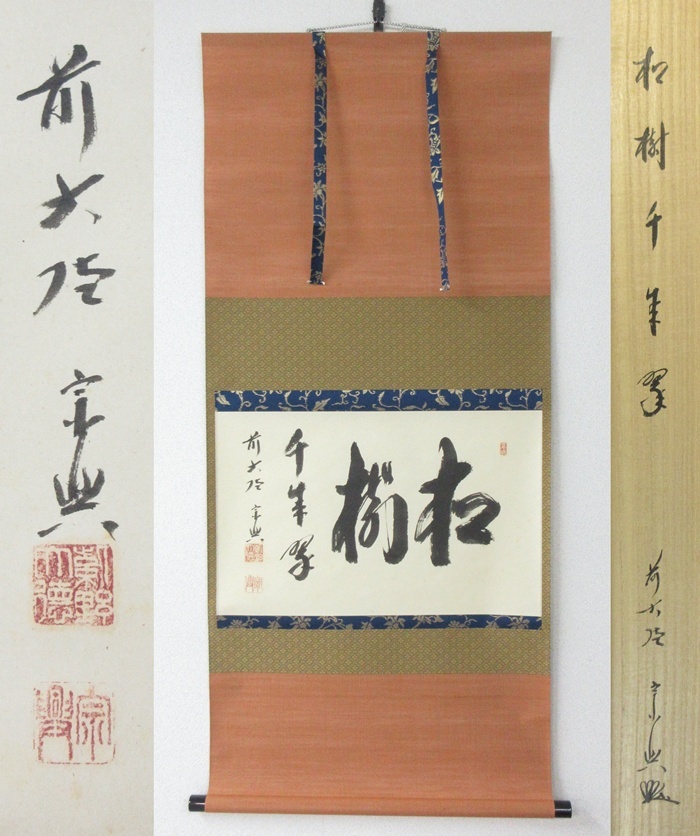 前大徳 宗興
松樹
千年翠
前大徳 宗興
松樹千年翠
前大徳 宗興